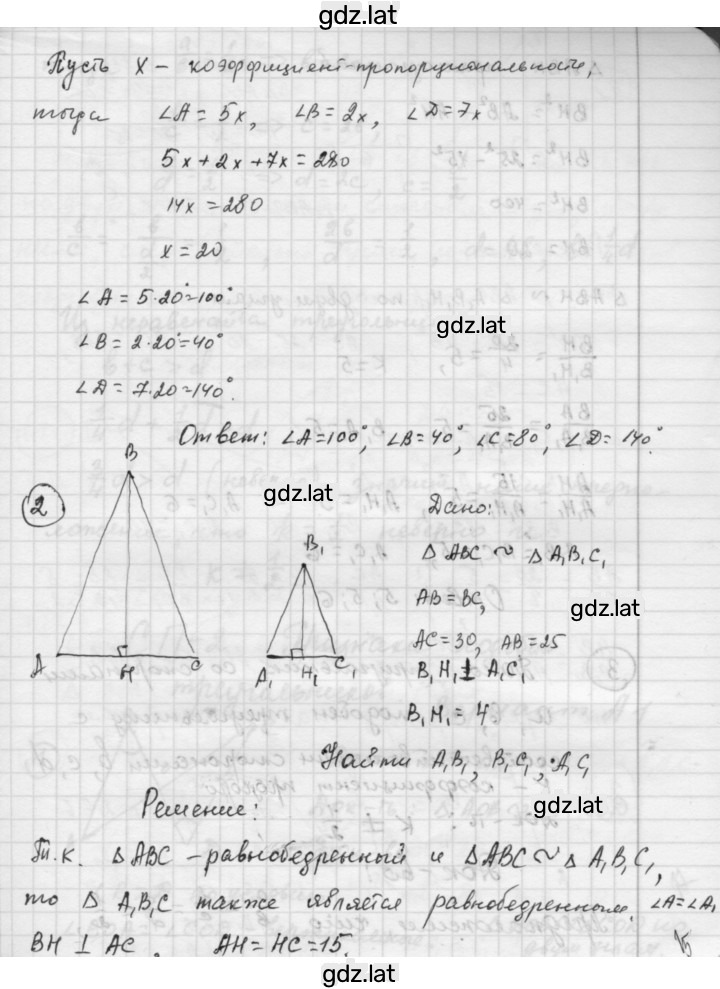 gdz.lat
Пусть x – коэффициент пропорциональности,
тогда ∠A = 5x, ∠B = 2x, ∠D = 7x
gdz.lat
5x + 2x + 7x = 280
14x = 280
x = 20
gdz.lat
∠A = 5·20 = 100°
∠B = 2·20° = 40°
∠D = 7·20 = 140°.
Ответ: ∠A = 100°, ∠B = 40°, ∠C = 80°, ∠D = 140°.
2
B
gdz.lat
Дано:
B₁
△ABC ~ △A₁B₁C₁
AB = BC,
gdz.lat
AC = 30, AB = 25
A H C
A₁ H₁ C₁
B₁H₁ ⊥ A₁C₁
B₁H₁ = 4
Найти A₁B₁, B₁C₁, A₁C₁
Решение:
gdz.lat
Т.к. △ABC – равнобедренный и △ABC ~ △A₁B₁C₁,
то △A₁B₁C также является равнобедренным, ∠A = ∠A₁
BH ⊥ AC, AH = HC = 15.
gdz.lat